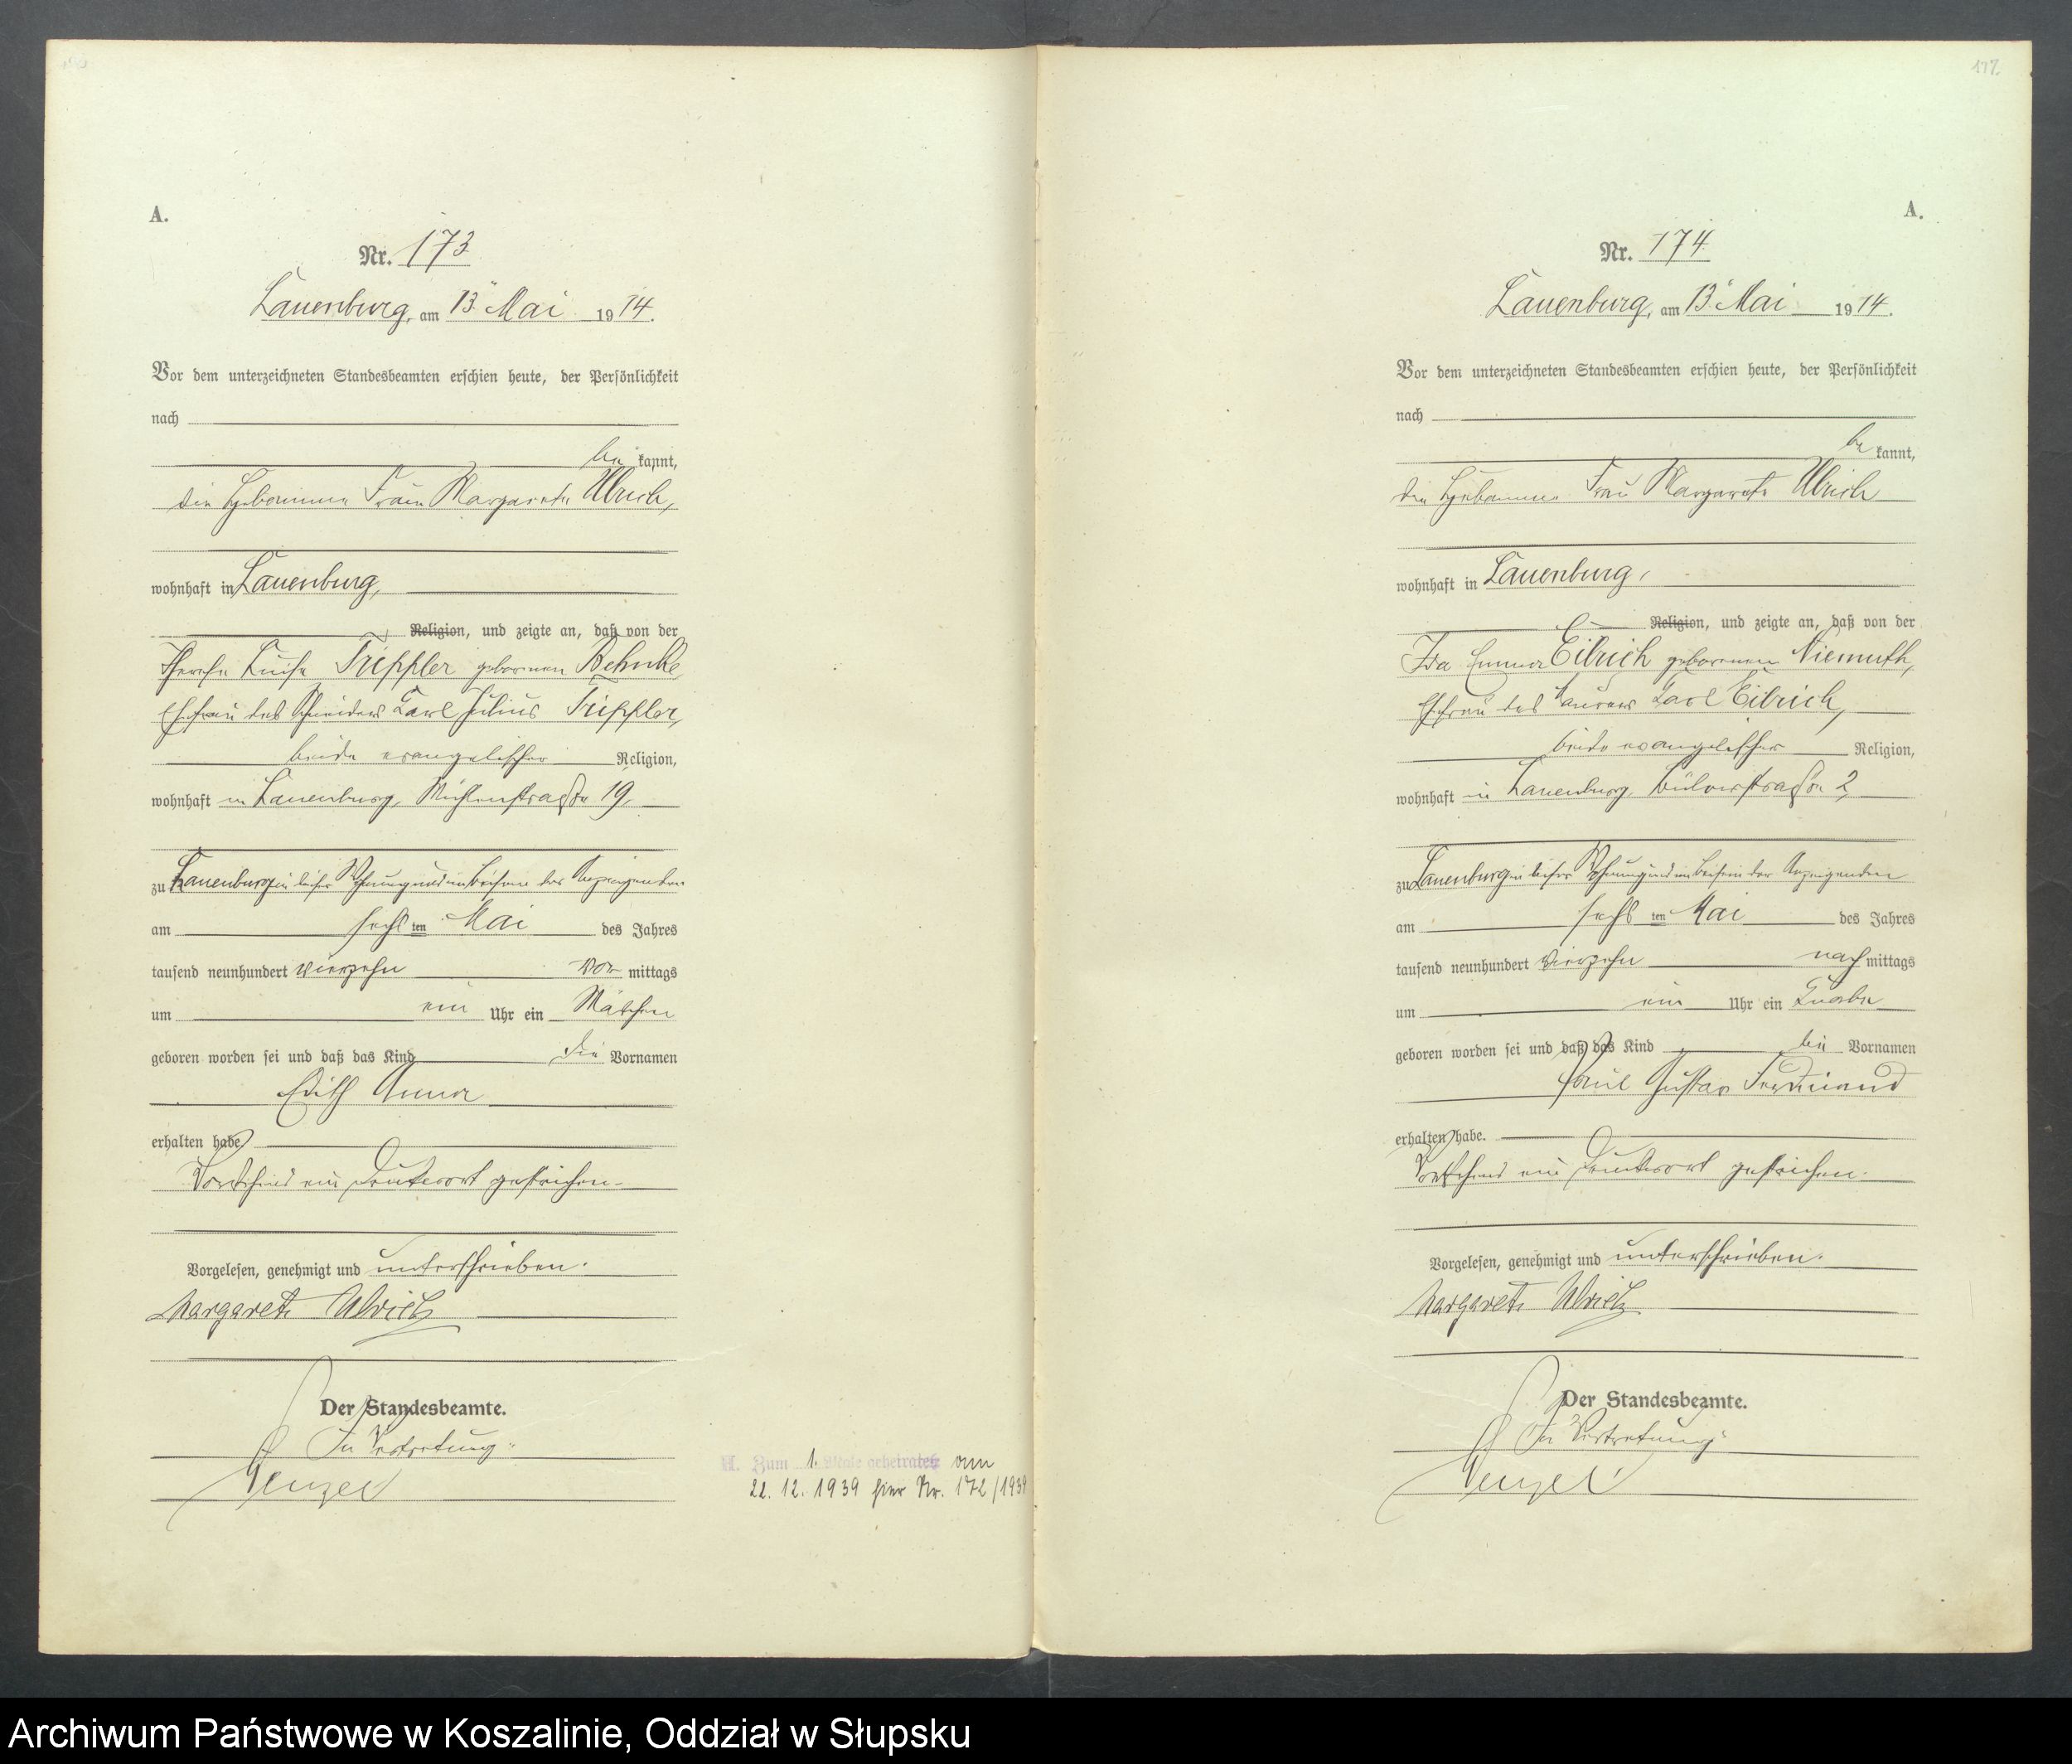 A.
Nr. 173
Lauenburg, am 13. Mai 1914.
Vor dem unterzeichneten Standesbeamten erschien heute, der Persönlichkeit
nach
be kannt,
die Hebamme Frau Margarete Ulrich,
wohnhaft in Lauenburg,
Religion, und zeigte an, daß von der
Luise Trippler geborenen Behnke,
Ehefrau des Schneiders Carl Julius Trippler,
beide evangelischer Religion,
wohnhaft in Lauenburg, Mühlenstraße 19,
zu Lauenburg in dieser Wohnung und im Beisein der Anzeigenden
am sechs ten Mai des Jahres
tausend neunhundert vierzehn vor mittags
um ein Uhr ein Mädchen
geboren worden sei und daß das Kind die Vornamen
Edith Anna
erhalten habe
Vorstehend ein Druckwort gestrichen.
Vorgelesen, genehmigt und unterschrieben.
Margarete Ulrich
Der Standesbeamte.
In Vertretung:
Wenzel
Zum 1. Male geheiratet am
22. 12. 1939 hier Nr. 172/1939
177.
A.
Nr. 174
Lauenburg, am 13. Mai 1914.
Vor dem unterzeichneten Standesbeamten erschien heute, der Persönlichkeit
nach
be kannt,
die Hebamme Frau Margarete Ulrich
wohnhaft in Lauenburg,
Religion, und zeigte an, daß von der
Ida Emma Eilrich geborenen Niemuth,
Ehefrau des Maurers Carl Eilrich,
beide evangelischer Religion,
wohnhaft in Lauenburg, Bülowstraße 2,
zu Lauenburg in dieser Wohnung und im Beisein der Anzeigenden
am sechs ten Mai des Jahres
tausend neunhundert vierzehn nach mittags
um ein Uhr ein Knabe
geboren worden sei und daß das Kind die Vornamen
Paul Gustav Ferdinand
erhalten habe.
Vorstehend ein Druckwort gestrichen.
Vorgelesen, genehmigt und unterschrieben.
Margarete Ulrich
Der Standesbeamte.
In Vertretung:
Wenzel
Archiwum Państwowe w Koszalinie, Oddział w Słupsku